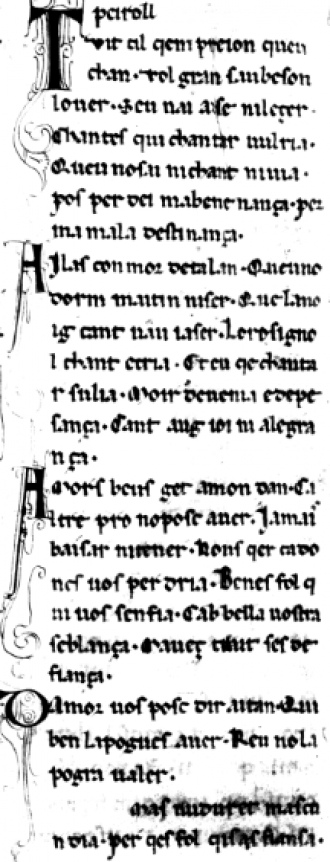 peiroll
Tuit cil qem preion queu
chan. vol gran saubeson
louer. Seu nai aise nileçer.
Chantes qui chantar uulria.
Queu nosai nichant niuia.
pos per dei mabenenança. per
ma mala destinança.
Ailas con mor detalan. Queuno
dorm maitin niser. Quelano
ig cant uau iaser. Lerosigno
l chant ecria. Et eu qe chanta
r sulia. Moir denenia edepe
sança. Cant aug ioi ni alegra
nça.
Amors beus ger amon dan. Ca
ltre pro nopose auer. Jamai
baisar nitener. Nous qer
nes uos per dria. Benes fol q
ni uos senfia. Cab bella uostra
seblança. Mauez trait ses de
fiança.
Damor uos pose dir aitan. Qui
ben lapogues auer. Reu nola
pogra ualer.
mas
n dia. per qes fol fiansa.